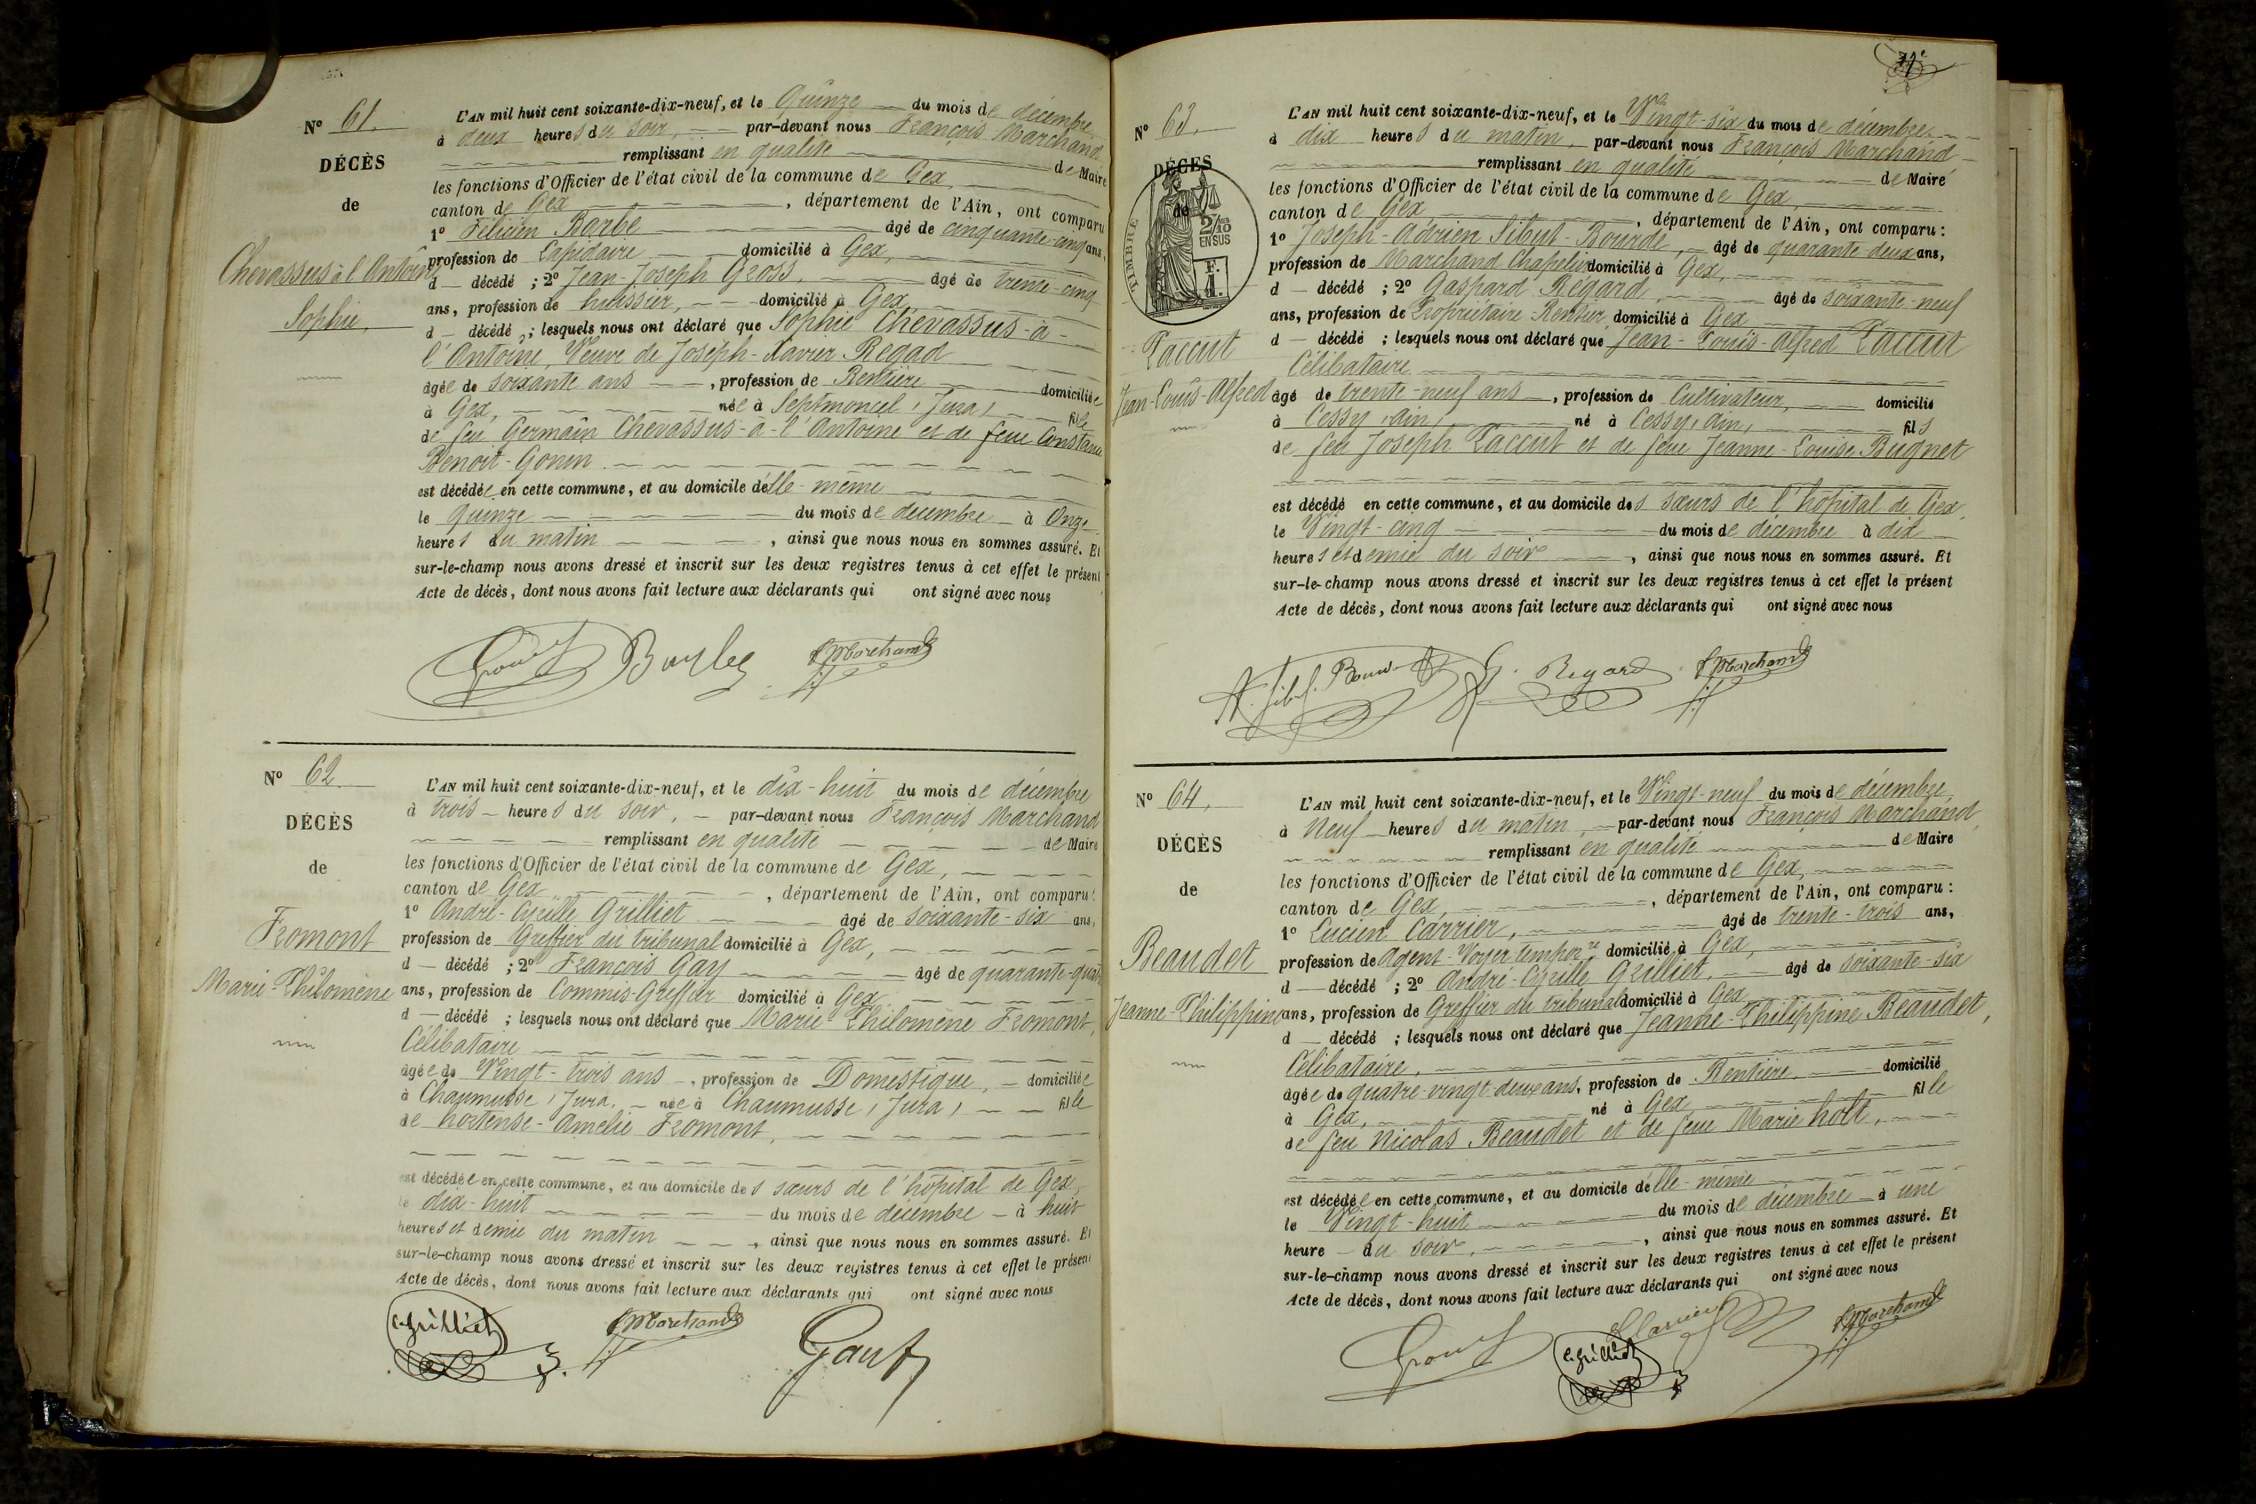 Nº 61.
DÉCÈS
de
Chevassus à l'Antoine
Sophie,
L'AN mil huit cent soixante-dix-neuf, et le Quinze du mois de décembre
à deux heures du soir, par-devant nous François Marchand
remplissant en qualité de Maire
les fonctions d'Officier de l'état civil de la commune de Gex,
canton de Gex, département de l'Ain, ont comparu
1º Félicien Barbe âgé de cinquante-cinq ans,
profession de Lapidaire domicilié à Gex,
d décédé ; 2º Jean-Joseph Gross, âgé de trente-cinq
ans, profession de huissier, domicilié à Gex
d décédé ; lesquels nous ont déclaré que Sophie Chevassus-à-
l'Antoine, Veuve de Joseph-Xavier Regad
âgée de soixante ans, profession de Rentière domiciliée
à Gex, née à Septmoncel, Jura, fille
de feu Germain Chevassus-à-l'Antoine et de feue Constance
Benoit-Gonin.
est décédée en cette commune, et au domicile d'elle-même
le quinze du mois de décembre à Onze
heures du matin, ainsi que nous nous en sommes assuré. Et
sur-le-champ nous avons dressé et inscrit sur les deux registres tenus à cet effet le présent
Acte de décès, dont nous avons fait lecture aux déclarants qui ont signé avec nous
F Marchand
Nº 62
DÉCÈS
de
Fromont
Marie-Philomène
L'AN mil huit cent soixante-dix-neuf, et le dix-huit du mois de décembre
à trois heures du soir, par-devant nous François Marchand
remplissant en qualité de Maire
les fonctions d'Officier de l'état civil de la commune de Gex,
canton de Gex, département de l'Ain, ont comparu :
1º André-Cyrille Grilliet âgé de soixante-six ans,
profession de Greffier du tribunal domicilié à Gex,
d décédé ; 2º François Gay âgé de quarante-quatre
ans, profession de Commis-Greffier domicilié à Gex
d décédé ; lesquels nous ont déclaré que Marie-Philomène Fromont,
Célibataire
âgée de Vingt-trois ans, profession de Domestique, domiciliée
à Chaumusse, Jura, née à Chaumusse, Jura, fille
de hortense-Amélie Fromont,
est décédée en cette commune, et au domicile des sœurs de l'hôpital de Gex,
le dix-huit du mois de décembre à huit
heures et demie du matin, ainsi que nous nous en sommes assuré. Et
sur-le-champ nous avons dressé et inscrit sur les deux registres tenus à cet effet le présent
Acte de décès, dont nous avons fait lecture aux déclarants qui ont signé avec nous
C. Grilliet F Marchand Gay f
Nº 63.
DÉCÈS
de
TIMBRE
2/10
EN SUS
F.
1.
Paccut
Jean-Louis-Alfred
L'AN mil huit cent soixante-dix-neuf, et le Vingt-six du mois de décembre
à dix heures du matin, par-devant nous François Marchand
remplissant en qualité de Maire
les fonctions d'Officier de l'état civil de la commune de Gex,
canton de Gex, département de l'Ain, ont comparu :
1º Joseph-Adrien Sibut-Bourde, âgé de quarante-deux ans,
profession de Marchand Chapelier domicilié à Gex,
d décédé ; 2º Gaspard Regard, âgé de soixante-neuf
ans, profession de Propriétaire Rentier, domicilié à Gex
d décédé ; lesquels nous ont déclaré que Jean-Louis-Alfred Paccut
Célibataire
âgé de trente-neuf ans, profession de Cultivateur, domicilié
à Cessy, Ain, né à Cessy, Ain, fils
de feu Joseph Paccut et de feue Jeanne-Louise Bugnet
est décédé en cette commune, et au domicile des sœurs de l'hôpital de Gex,
le Vingt-cinq du mois de décembre à dix
heures et demie du soir, ainsi que nous nous en sommes assuré. Et
sur-le-champ nous avons dressé et inscrit sur les deux registres tenus à cet effet le présent
Acte de décès, dont nous avons fait lecture aux déclarants qui ont signé avec nous
G. Regard F Marchand
Nº 64.
DÉCÈS
de
Beaudet
Jeanne-Philippine
L'AN mil huit cent soixante-dix-neuf, et le Vingt-neuf du mois de décembre,
à Neuf heures du matin, par-devant nous François Marchand,
remplissant en qualité de Maire
les fonctions d'Officier de l'état civil de la commune de Gex,
canton de Gex, département de l'Ain, ont comparu :
1º Lucien Carrier, âgé de trente-trois ans,
profession de Agent-Voyer tempor.re domicilié à Gex,
d décédé ; 2º André-Cyrille Grilliet, âgé de soixante-six
ans, profession de Greffier du tribunal domicilié à Gex
d décédé ; lesquels nous ont déclaré que Jeanne-Philippine Beaudet,
Célibataire,
âgée de quatre-vingt-deux ans, profession de Rentière, domicilié
à Gex, né à Gex fille
de feu Nicolas Beaudet et de feue Marie holt,
est décédée en cette commune, et au domicile d'elle-même
le Vingt-huit du mois de décembre à une
heure du soir, ainsi que nous nous en sommes assuré. Et
sur-le-champ nous avons dressé et inscrit sur les deux registres tenus à cet effet le présent
Acte de décès, dont nous avons fait lecture aux déclarants qui ont signé avec nous
C. Grilliet F Marchand